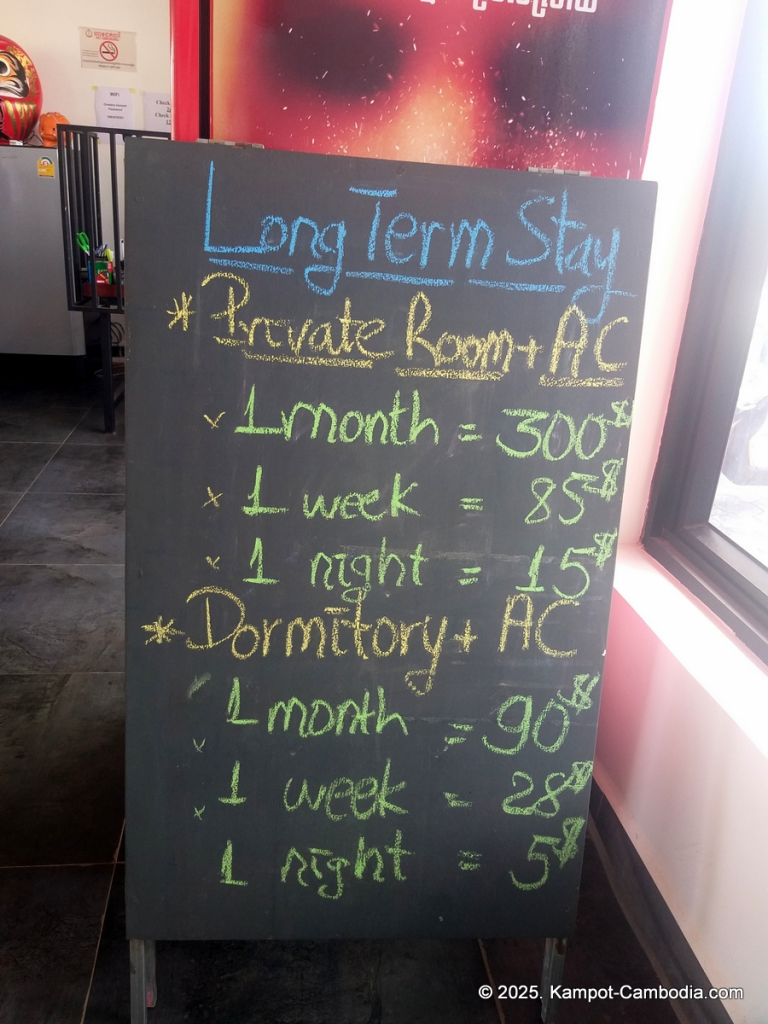 Long Term Stay
* Private Room + AC
x 1 month = 300$
x 1 week = 85$
x 1 night = 15$
* Dormitory + AC
1 month = 90$
x 1 week = 28$
x 1 night = 5$
© 2025. Kampot-Cambodia.com